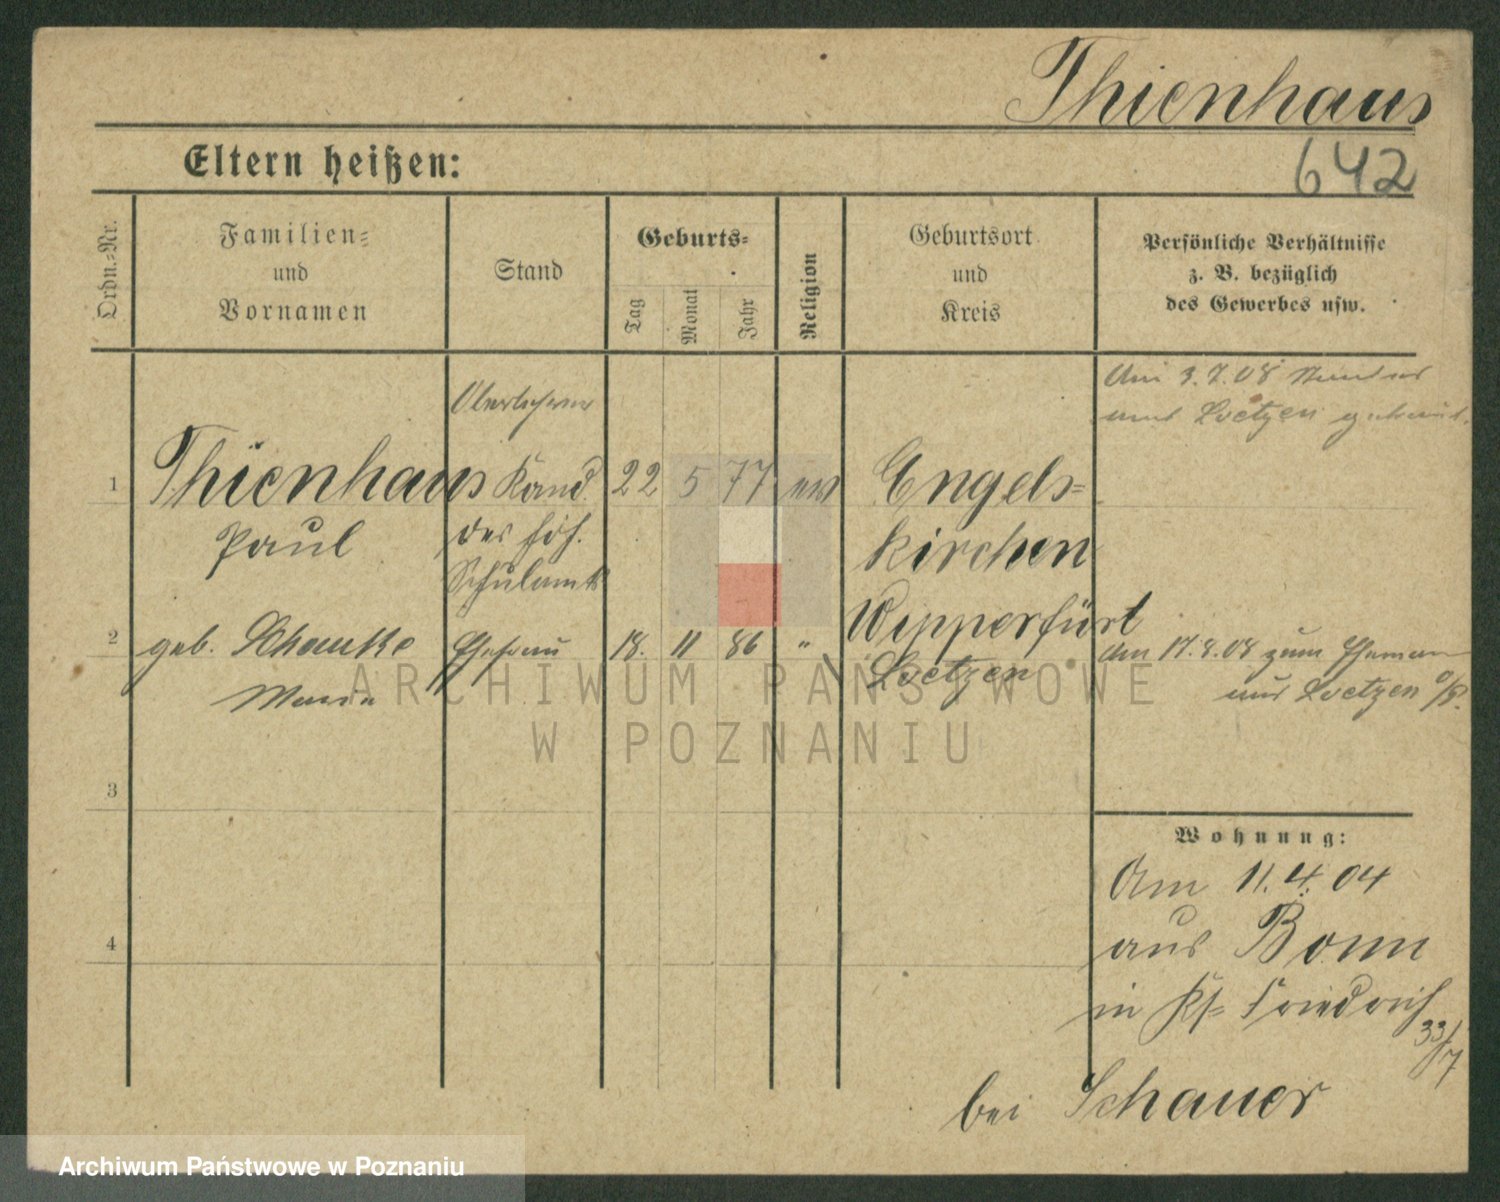 Thienhaus
642
Eltern heißen:
Ordn.-Nr.
Familien-
und
Vornamen
Stand
Geburts-
Tag
Monat
Jahr
Religion
Geburtsort
und
Kreis
Persönliche Verhältnisse
z. B. bezüglich
des Gewerbes usw.
Am 3.7.08
und Loetzen getraut.
Oberlehrer
1 Thienhaus Kand. 22 5 77 ev Engels-
Paul des höh. kirchen
Schulamts
Wipperfürt
2 geb. Ehefrau 18. 11 86 " Loetzen
Am 17.8.08 zum Ehemann
aus Loetzen o/P.
3
4
Wohnung:
Am 11.4.04
aus Bonn
in Ks. Friedrich
33/7
bei Schauer
ARCHIWUM PAŃSTWOWE
W POZNANIU
Archiwum Państwowe w Poznaniu